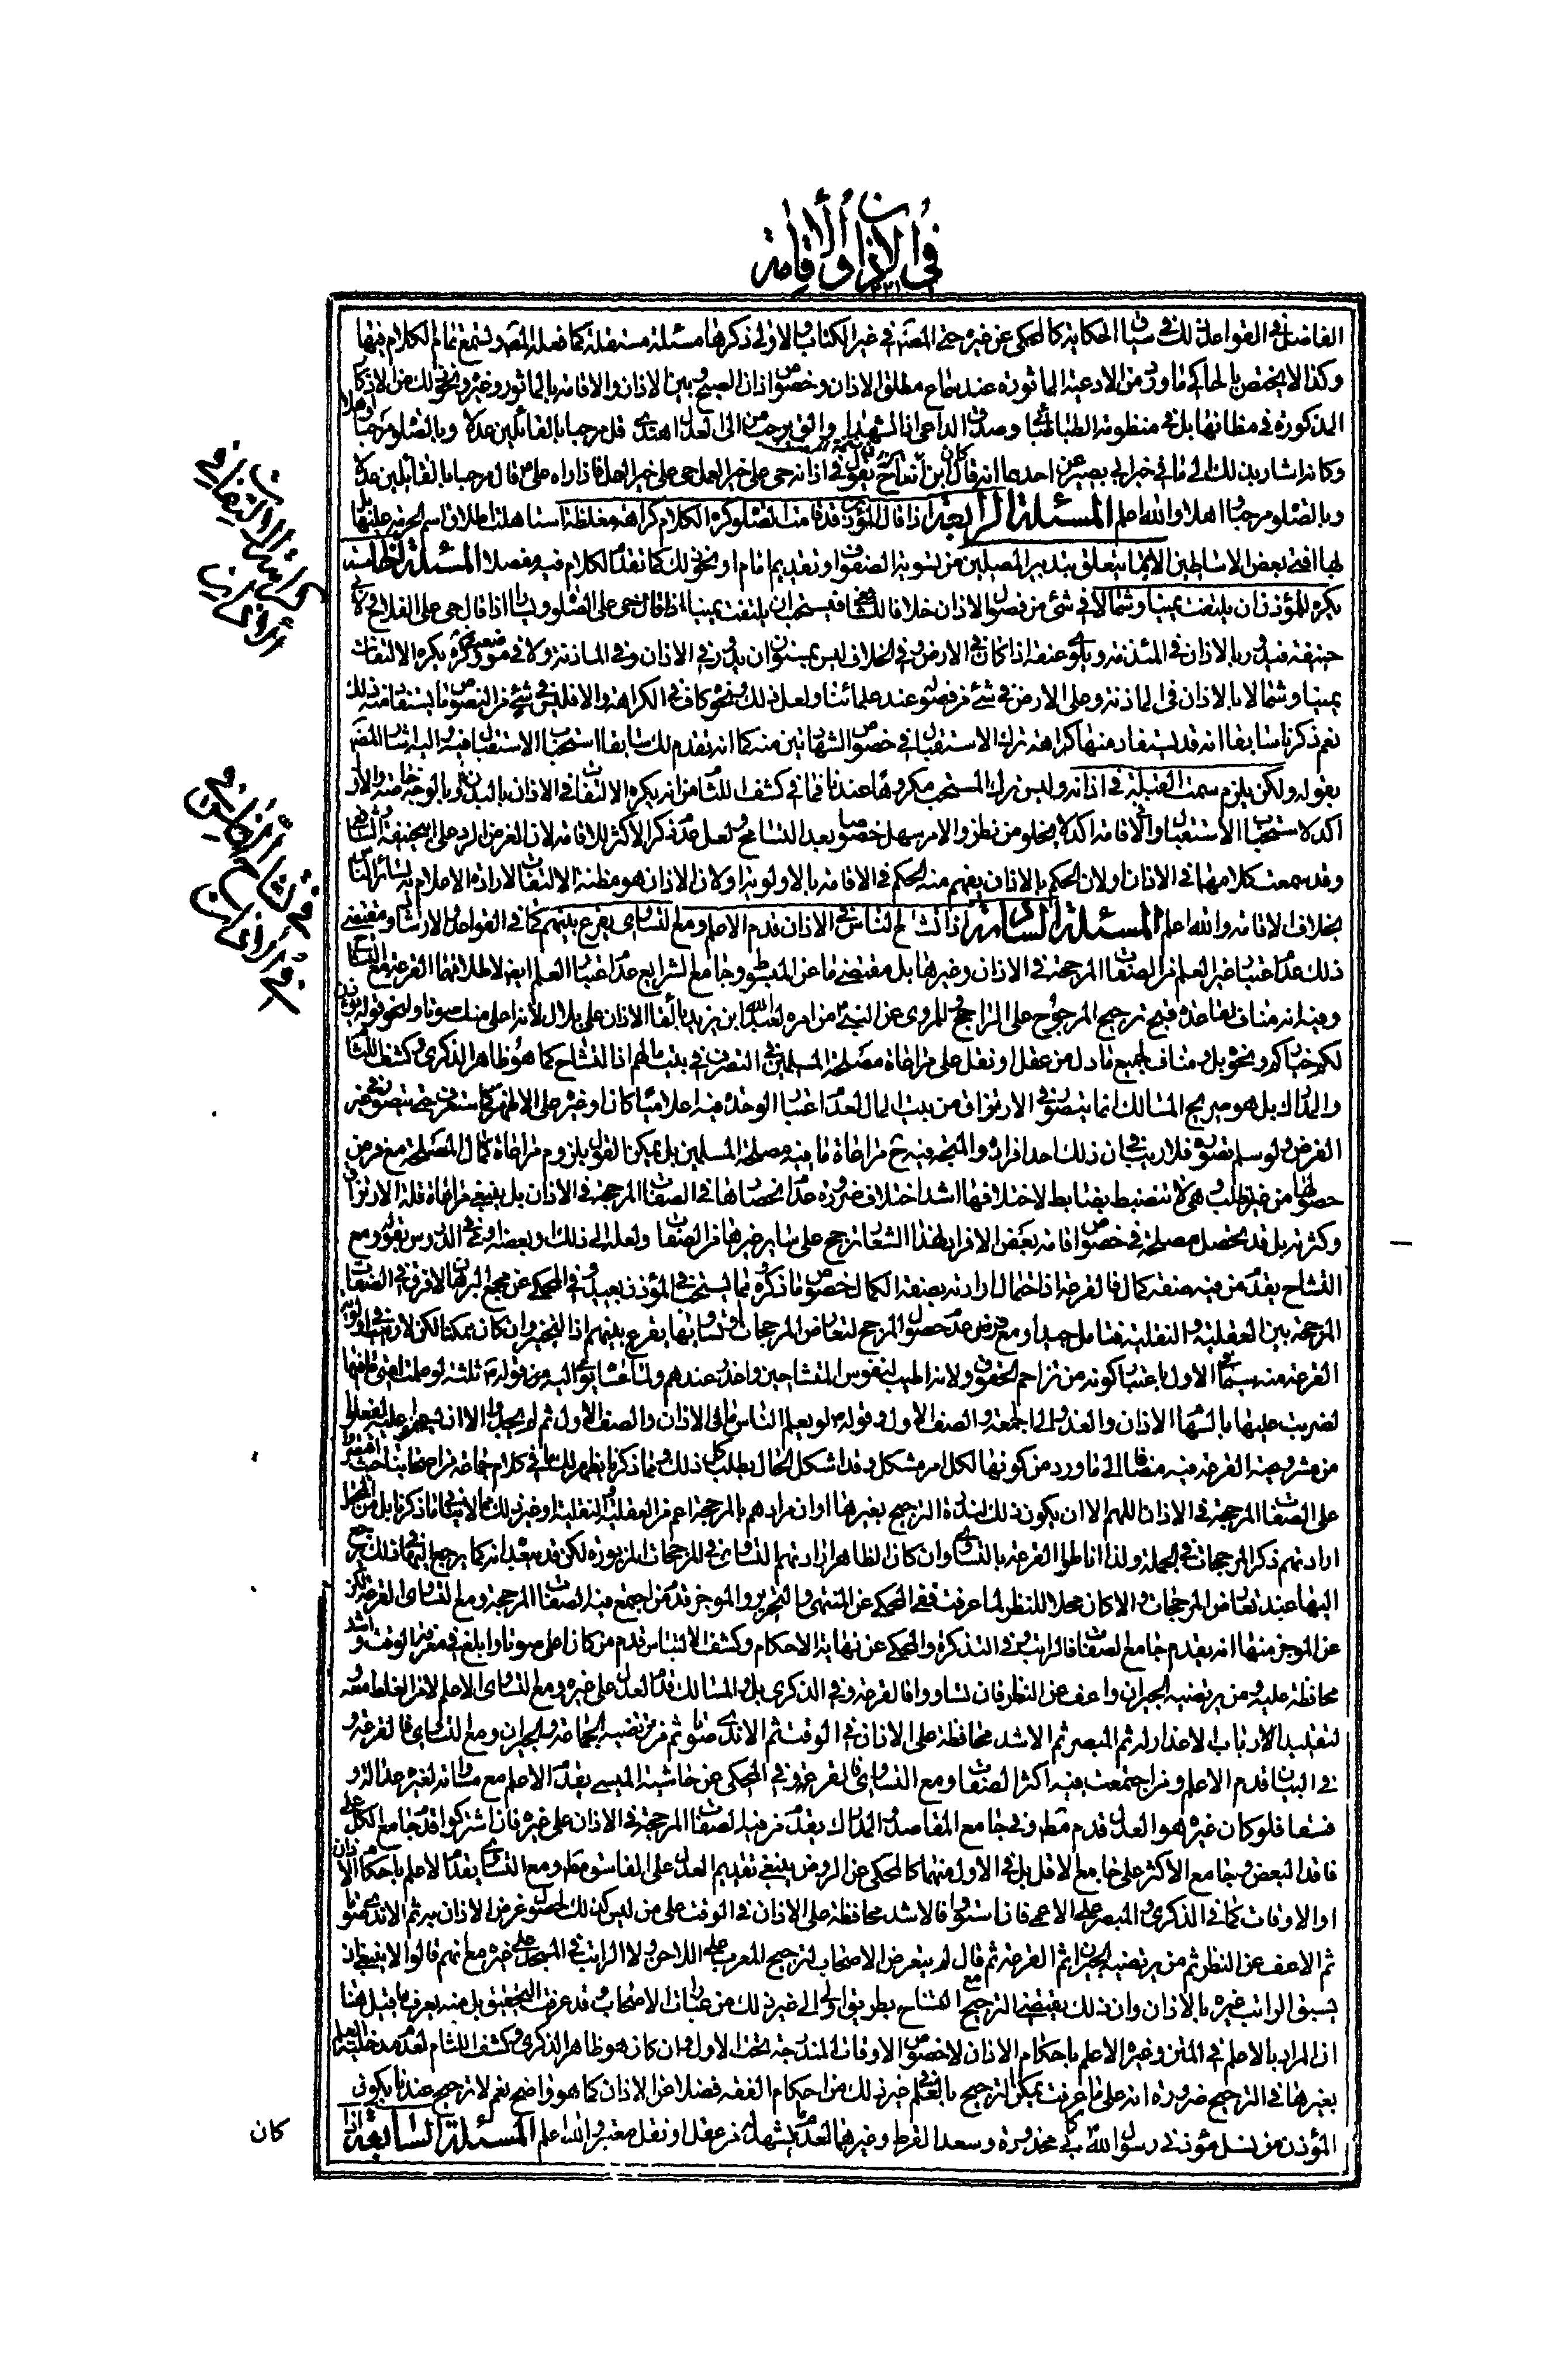 في الاذان والاقامة
الفاضل في القواعد ذلك في سياق الحكاية كالمحكي عن غيره حتى المصنف في غير الكتاب والاولى ذكرها مسئلة مستقلة كما فعله المصنف وتسمع تمام الكلام فيها
وكذا لا يختص بالحاكي ما ورد من الادعية الماثورة عند سماع مطلق الاذان وخصوص اذان الصبح وبين الاذان والاقامة بالماثور وغيره ونحو ذلك من الاذكار
المذكورة في مظانها بل في منظومة الطباطبائي وصدق الداعي اذا تشهدا والق برجب من الى العدل اهتدى قل مرحبا بالقائلين عدلا وبالصلوة مرحبا واهلا
وكانه اشار بذلك الى ما في خبر ابي بصير عن احدهما انه قال كان ابن النباح يقول في اذانه حي على خير العمل حي على خير العمل فاذا راه علي ع قال مرحبا بالقائلين عدلا
وبالصلوة مرحبا واهلا والله اعلم المسئلة الرابعة اذا قال المؤذن قد قامت الصلوة كره الكلام كراهة مغلظة استاهلت اطلاق اسم الحرمة عليها بل
لها افتى بعض الاساطين الا بما يتعلق بتدبير المصلين من تسوية الصفوف او تقديم امام او نحو ذلك كما تقدم الكلام فيه مفصلا المسئلة الخامسة
يكره للمؤذن ان يلتفت يمينا وشمالا في شئ من فصول الاذان خلافا للشافعي فيستحب ان يلتفت يمينا اذا قال حي على الصلوة ويسارا اذا قال حي على الفلاح ولابي
حنيفة فيدور بالاذان في المئذنة ويلوي عنقه اذا كان في الارض وفي الخلاف ليس بمسنون ان يدور في الاذان وفي الماذنة ولا في موضعه وفي التذكرة يكره الالتفات
يمينا وشمالا بالاذان في الماذنة وعلى الارض في شئ من فصوله عند علمائنا ولعل ذلك ونحوه كاف في الكراهة والا فليس في شئ من النصوص ما يستفاد منه ذلك
نعم ذكرنا سابقا انه قد يستفاد منها كراهة ترك الاستقبال في خصوص الشهادتين منه كما انه تقدم لك سابقا استحباب الاستقبال فيه واليه اشار المصنف
بقوله ولكن يلزم سمت القبلة في اذانه وليس ترك المستحب مكروها عندنا فما في كشف اللثام من انه يكره الالتفات في الاذان بالبدن او بالوجه خاصة والاول
اكد لاستحباب الاستقبال وان الاقامة اكد لا يخلو من نظر والامر سهل خصوصا بعد التسامح ولعل عدم ذكر الاكثر للاقامة لان الغرض الرد على ابي حنيفة والشافعي
وقد سمعت كلامهما في الاذان اولان الحكم بالاذان يفهم منه الحكم في الاقامة بالاولوية او لان الاذان هو مظنة الالتفات لارادة الاعلام به لسائر الناس
بخلاف الاقامة والله اعلم المسئلة السادسة اذا تشاح الناس في الاذان قدم الاعلم ومع التساوي يقرع بينهم كما في القواعد والارشاد ومقتضى
ذلك عدم اعتبار غير العلم من الصفات المرجحة في الاذان وغيرها بل مقتضى ما عن المبسوط وجامع الشرايع عدم اعتبار العلم ايضا لاطلاقهما القرعة مع التشاح
وفيه انه مناف لقاعدة قبح ترجيح المرجوح على الراجح وللمروي عن النبي ص من امره لعبد الله ابن زيد بالقاء الاذان على بلال لانه اعلى منك صوتا ولنحو قوله يؤذن
لكم خياركم ونحوه بل ومناف لجميع ما دل من عقل او نقل على مراعاة مصلحة المسلمين في التصرف في بيت مالهم اذا التشاح كما هو ظاهر الذكرى وكشف اللثام
والمدارك بل هو صريح المسالك انما يتصور في الارتزاق من بيت المال لعدم اعتبار الوحدة فيه اعلاميا كان او غيره على الاظهر كما ستعرف حتى يتصور في غير
الفرض ولو سلم تصوره فلا ريب في ان ذلك احد افراده والمتجه فيه ح مراعاة ما فيه مصلحة المسلمين بل يمكن القول بلزوم مراعاة كمال المصلحة مع فرض
حصولها من غير طلب وهي لا تنضبط بضابط لاختلافها اشد اختلاف ضرورة عدم انحصارها في الصفات المرجحة في الاذان بل ينبغي مراعاة قلة الارتزاق
وكثرته بل قد يحصل مصلحة في خصوص اقامة بعض الافراد لهذا الشعار ترجح على ساير غيرها من الصفات ولعله الى ذلك وبعضه في الدروس بقوله ومع
التشاح يقدم من فيه صفة كمال فالقرعة اذ احتمال ارادته بصفة الكمال خصوص ما ذكروه فيما يستحب في المؤذن بعيد وفي المحكي عن مجمع البرهان لا فرق في الصفات
المرجحة بين العقلية والنقلية فتامل جيدا ومع فرض عدم حصول المرجح لتعارض المرجحات او تساويها يقرع بينهم اذ التخيير وان كان ممكنا لكن لا ريب في اولوية
القرعة منه سيما في الاول باعتبار كونه من تزاحم الحقوق ولانه اطيب لنفوس المتشاحين واخذ عندهم ولما عساه يومي اليه من قوله ص ثلثة لو علمت امتي ما فيها
لضربت عليها بالسهام الاذان والغدو الى الجمعة والصف الاول وقوله ص لو يعلم الناس ما في الاذان والصف الاول ثم لم يجدوا الا ان يستهموا عليه لفعلوا
من مشروعية القرعة فيه مضافا الى ما ورد من كونها لكل امر مشكل وقد اشكل الحال بطلب كل ذلك ومما ذكرنا يظهر لك ما في كلام جماعة من اصحابنا حيث اقتصروا
على الصفات المرجحة في الاذان اللهم الا ان يكون ذلك لندرة الترجيح بغيرها او ان مرادهم بالمرجحة اعم من العقلية والنقلية او غير ذلك مما لا ينافي ما ذكرنا بل من المحتمل
ارادتهم ذكر المرجحات في الجملة ولذا اناطوا القرعة بالتساوي وان كان الظاهر ارادتهم التساوي في المرجحات المزبورة لكن قد يشهد له انه كما يرجع اليهما في ذلك يرجع
اليها عند تعارض المرجحات والا كان محلا للنظر لما عرفت ففي المحكي عن المنتهى والتحرير والموجز قدم من اجتمع فيه الصفات المرجحة ومع التساوي القرعة لكن
عن الموجز منها انه يقدم جامع الصفات فالراتب وفي التذكرة والمحكي عن نهاية الاحكام وكشف الالتباس قدم من كان اعلى صوتا وابلغ في معرفة الوقت واشد
محافظة عليه ومن يرتضيه الجيران واعف عن النظر فان تساووا فالقرعة وفي الذكرى بل والمسالك قدم العدل على غيره ومع التساوي الاعلم لامن الغلط معه
لتقليد الارباب الاعذار له ثم المبصر ثم الاشد محافظة على الاذان في الوقت ثم الاندى صوتا ثم من ترتضيه الجماعة والجيران ومع التساوي فالقرعة و
في البيان قدم الاعلم ومن اجتمعت فيه اكثر الصفات ومع التساوي فالقرعة وفي المحكي عن حاشية الميسي يقدم الاعلم مع مساواته لغيره عدالة و
فسقا فلو كان غيره هو العدل قدم مط وفي جامع المقاصد والمدارك يقدم من فيه الصفات المرجحة في الاذان على غيره فان اشتركوا قدم جامع الكل على
فاقد البعض وجامع الاكثر على جامع الاقل بل في الاول منهما كالمحكي عن الروض ينبغي تقديم العدل على الفاسق مط ومع التساوي يقدم الاعلم باحكام الاذان
او الاوقات كما في الذكرى والمبصر على الاعمى فان استووا فالاشد محافظة على الاذان في الوقت على من ليس كذلك لحصول غرض الاذان به ثم الاندى صوتا
ثم الاعف عن النظر ثم من يرتضيه الجيران ثم القرعة ثم قال لم يتعرض الاصحاب لترجيح المعرب على اللاحن ولا الراتب في المسجد على غيره مع انهم قالوا لا ينبغي ان
يسبق الراتب غيره بالاذان وان ذلك يقتضي الترجيح مع التشاح بطريق اولى الى غير ذلك من عبارات الاصحاب وقد عرفت التحقيق بل منه يعرف ما قيل هنا
ان المراد بالاعلم في المتن وغيره الاعلم باحكام الاذان لا خصوص الاوقات المندرجة تحت الاول وان كان هو ظاهر الذكرى وكشف اللثام لعدم مدخلية العلم
بغيرها في الترجيح ضرورة انه على ما عرفت يمكن الترجيح بالعلم في غير ذلك من احكام الفقه فضلا عن الاذان كما هو واضح نعم لا ترجيح عندنا بكون
المؤذن من نسل مؤذني رسول الله ص كابي محذورة وسعد القرظ وغيرهما لعدم ما يشهد له من عقل او نقل معتبر والله اعلم المسئلة السابعة اذا
كان